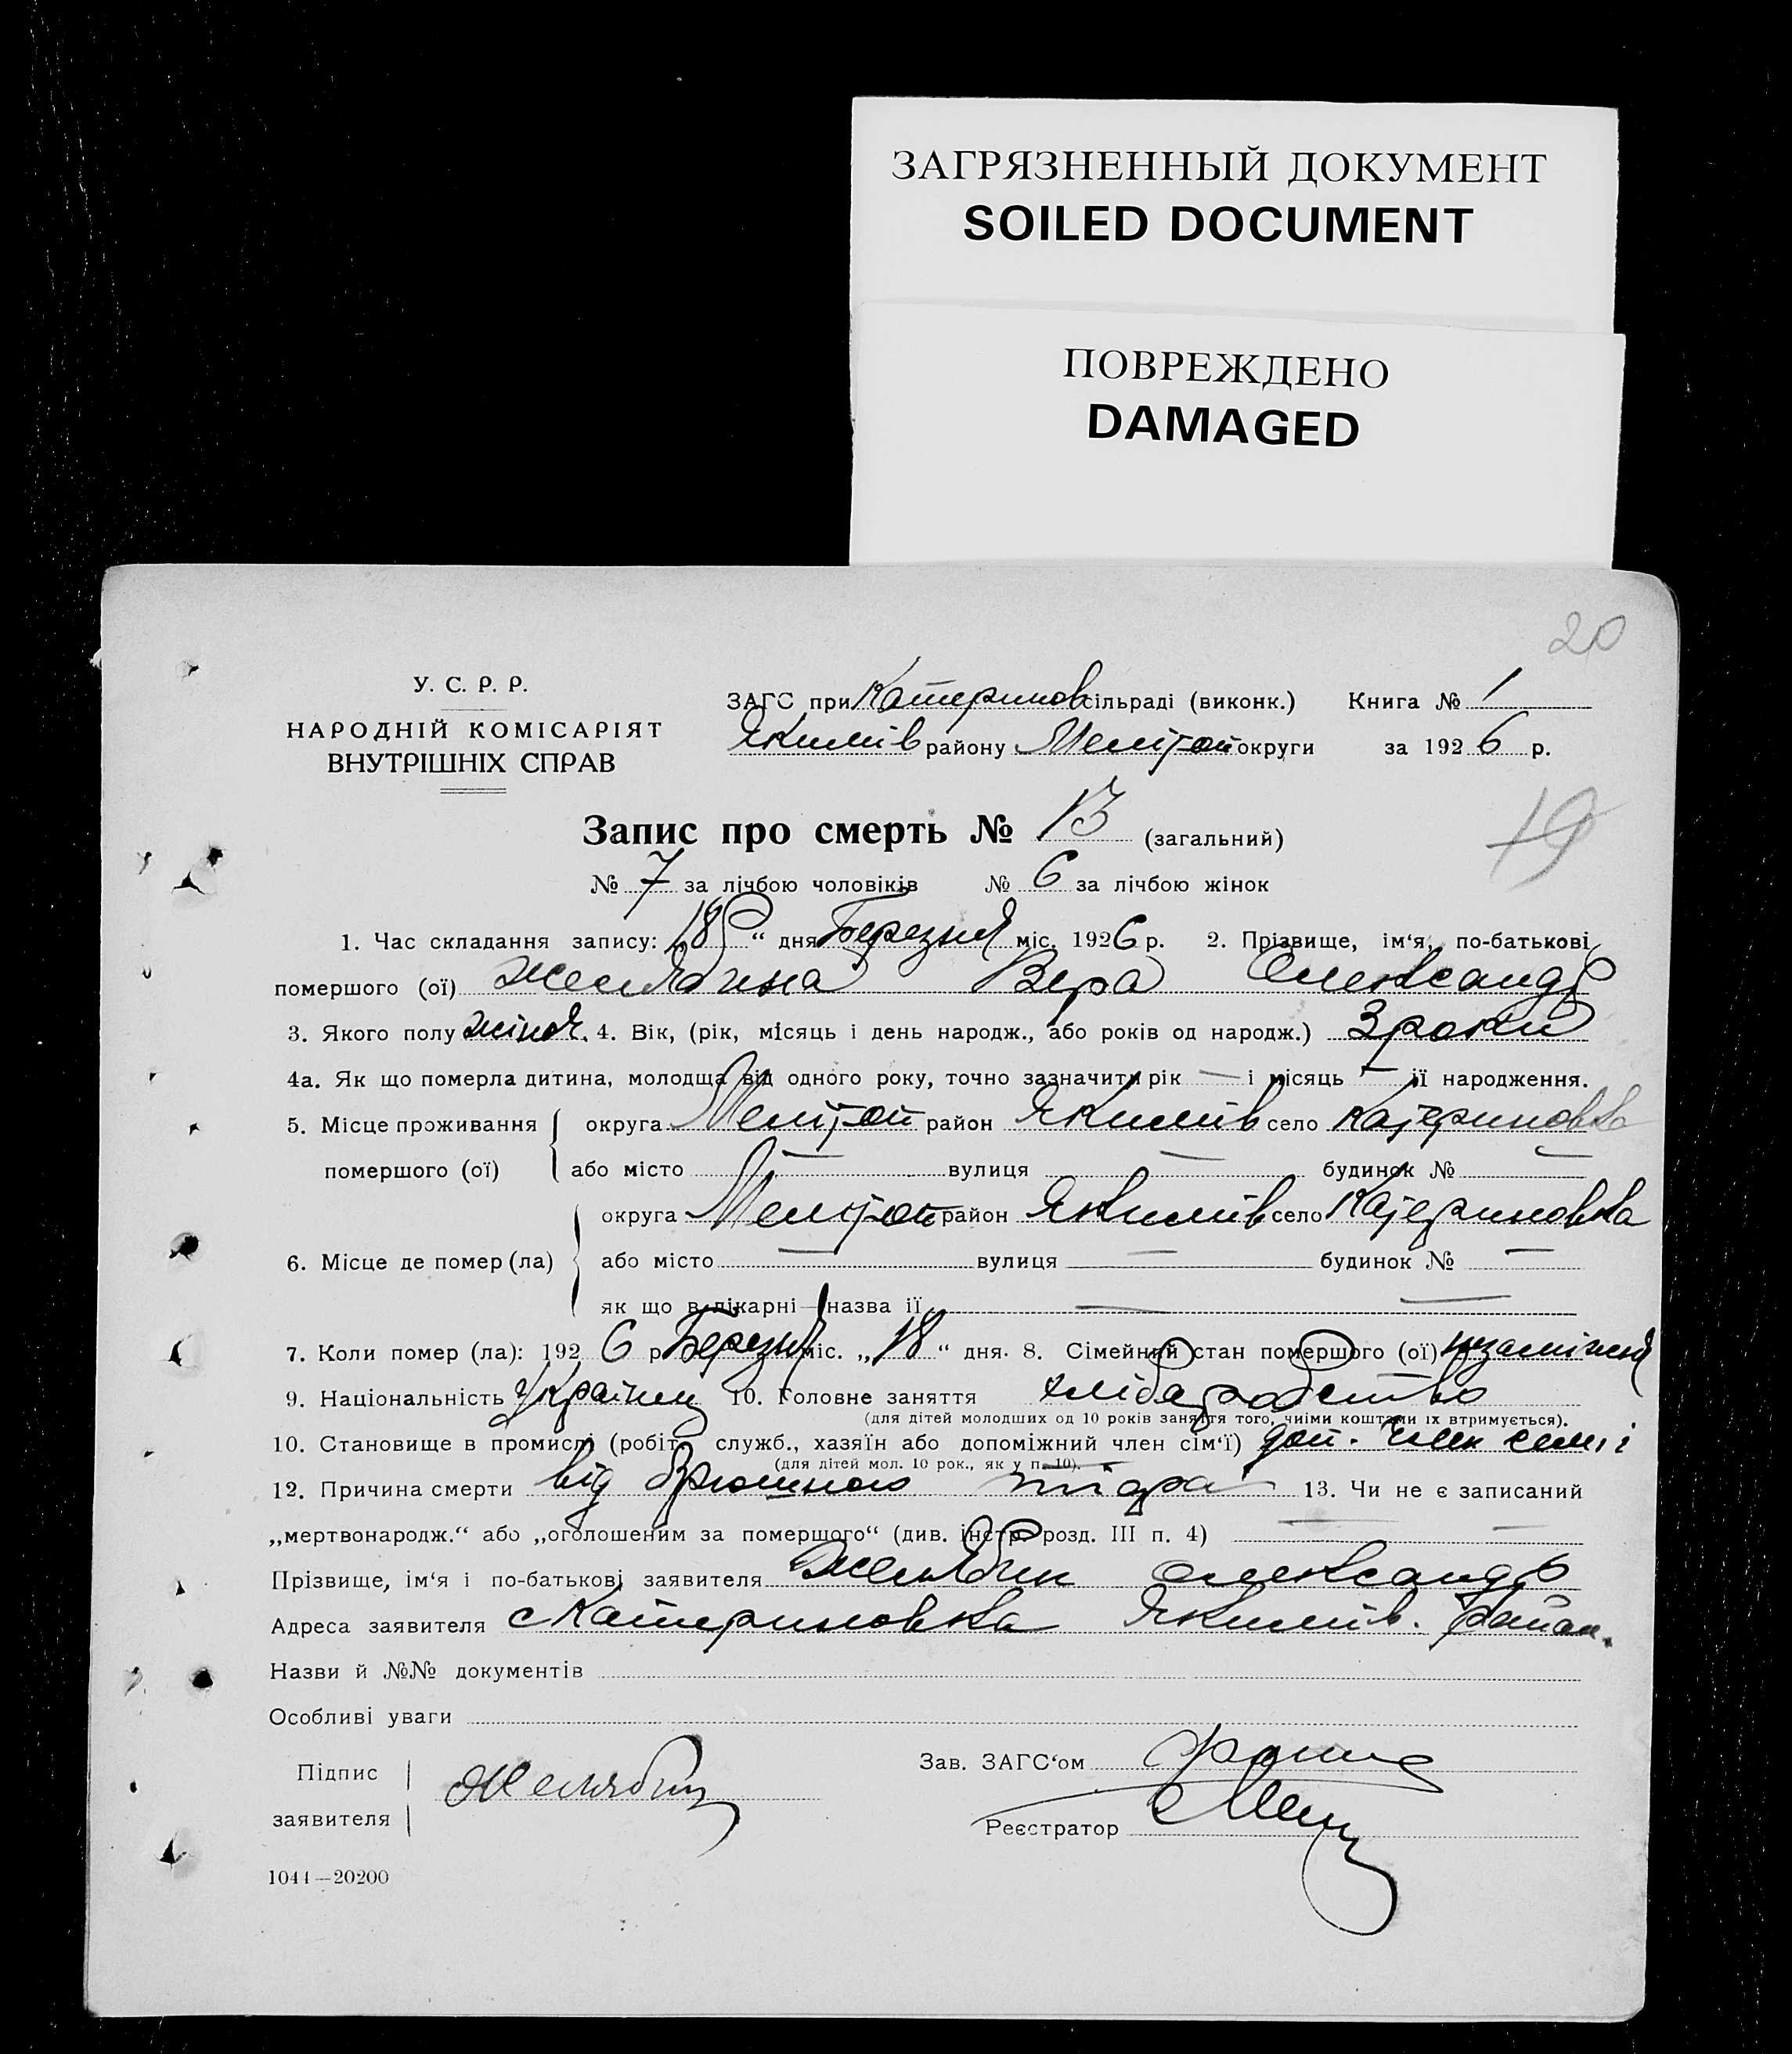 ЗАГРЯЗНЕННЫЙ ДОКУМЕНТ
SOILED DOCUMENT
ПОВРЕЖДЕНО
DAMAGED
20
У. С. Р. Р.
НАРОДНІЙ КОМІСАРІЯТ
ВНУТРІШНІХ СПРАВ
ЗАГС при Катеринов сільраді (виконк.) Книга № 1
Якимів району Мелітоп округи за 1926 р.
Запис про смерть № 13 (загальний)
19
№ 7 за лічбою чоловіків № 6 за лічбою жінок
1. Час складання запису: „18“ дня Березня міс. 1926 р. 2. Прізвище, ім‘я, по-батькові
помершого (ої) Желябина Вера Олександр
3. Якого полу жіноч. 4. Вік, (рік, місяць і день народж., або років од народж.) 3 роки
4а. Як що померла дитина, молодща від одного року, точно зазначити рік — і місяць — її народження.
5. Місце проживання округа Мелітоп район Якимів село Катериновка
помершого (ої) або місто — вулиця — будинок № —
округа Мелітоп район Якимів село Катериновка
6. Місце де помер (ла) або місто — вулиця — будинок № —
як що в лікарні—назва її — —
7. Коли помер (ла): 1926 р. Березня міс. „18“ дня. 8. Сімейний стан помершого (ої) незаміжня
9. Національність Українц 10. Головне заняття хлібаробство
(для дітей молодших од 10 років заняття того, чиїми коштами їх втримується).
10. Становище в промислі (робіт., служб., хазяїн або допоміжний член сім‘ї) доп. член семі
(для дітей мол. 10 рок., як у п. 10).
12. Причина смерти від брюшного тіфа 13. Чи не є записаний
„мертвонародж.“ або „оголошеним за помершого“ (див. інстр. розд. III п. 4) —
Прізвище, ім‘я і по-батькові заявителя Желябин Олександр
Адреса заявителя с Катериновка Якимів. район.
Назви й №№ документів
Особливі уваги
Підпис
заявителя Желябин
Зав. ЗАГС‘ом
Реєстратор
1044—20200